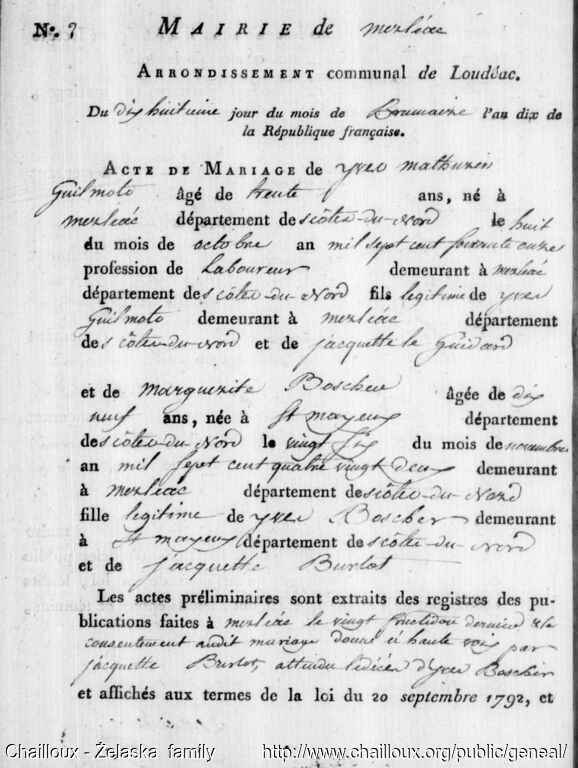 N.º 7 MAIRIE de merléac
ARRONDISSEMENT communal de Loudéac.
Du dix huitieme jour du mois de Brumaire l'an dix de
la République française.
ACTE DE MARIAGE de yves mathurin
Guilmoto âgé de trente ans, né à
merléac département des côtes-du-Nord le huit
du mois de octobre an mil sept cent soixante onze
profession de Laboureur demeurant à merléac
département des côtes-du-Nord fils legitime de yves
Guilmoto demeurant à merléac département
des côtes-du-Nord et de jacquette le Guidard
et de marguerite Boscher âgée de dix
neuf ans, née à St mayeux département
des côtes-du-Nord le vingt six du mois de novembre
an mil sept cent quatre vingt deux demeurant
à merléac département des côtes-du-Nord
fille legitime de yves Boscher demeurant
à St mayeux département des côtes-du-Nord
et de jacquette Burlot
Les actes préliminaires sont extraits des registres des pu-
blications faites à merléac le vingt fructidor dernier & le
consentement audit mariage donné à haute voix par
jacquette Burlot, attendu le décès d'yves Boscher
et affichés aux termes de la loi du 20 septembre 1792, et
Chailloux - Żelaska family http://www.chailloux.org/public/geneal/